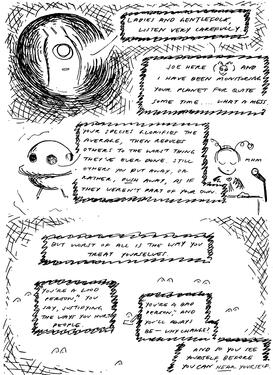 LADIES AND GENTLEFOLK,
LISTEN VERY CAREFULLY.
JOE HERE AND
I HAVE BEEN MONITORING
YOUR PLANET FOR QUITE
SOME TIME... WHAT A MESS.
YOUR SPECIES GLORIFIES THE
AVERAGE, THEN REDUCES
OTHERS TO THE WORST THING
THEY'VE EVER DONE. STILL
OTHERS YOU PUT AWAY, OR
RATHER, PUSH AWAY, AS IF
THEY WEREN'T PART OF YOUR OWN.
MHM
BUT WORST OF ALL IS THE WAY YOU
TREAT YOURSELVES.
"YOU'RE A GOOD
PERSON," YOU
SAY, JUSTIFYING
THE WAYS YOU HURT
PEOPLE.
"YOU'RE A BAD
PERSON," AND
YOU'LL ALWAYS
BE – WHY CHANGE?
AND SO YOU SEE
YOURSELF, BEFORE
YOU CAN HEAR YOURSELF